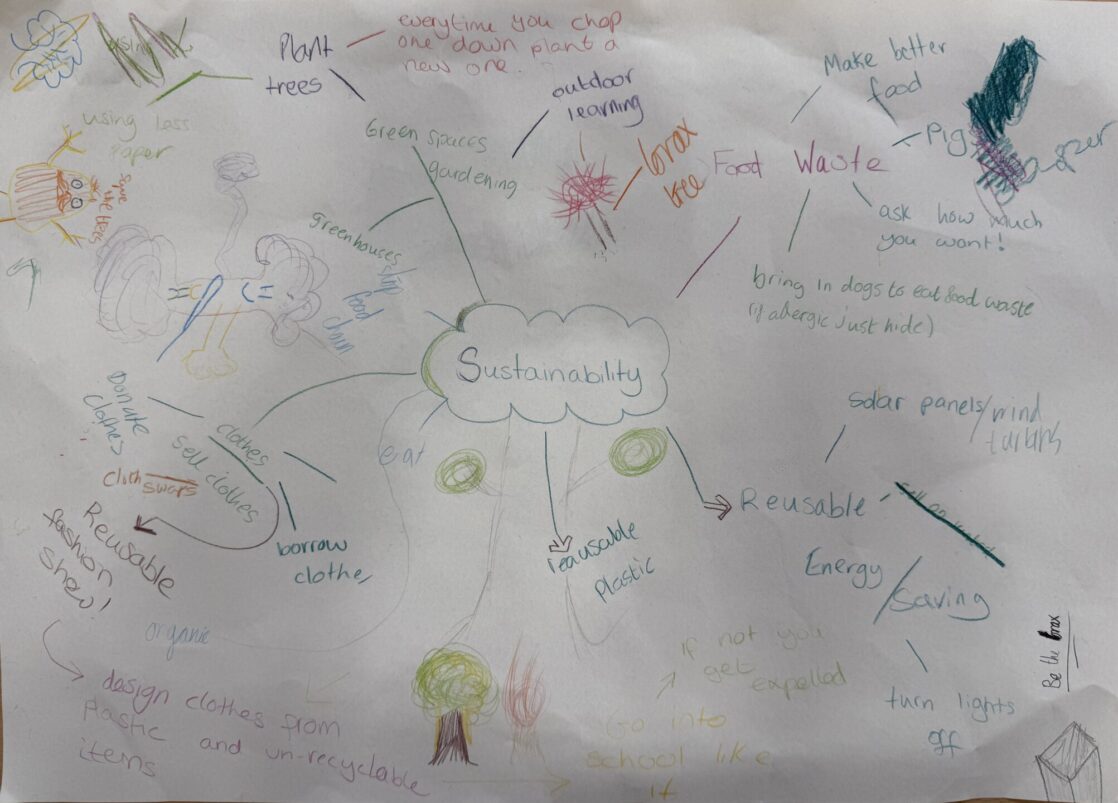 Plant
trees
everytime you chop
one down plant a
new one.
outdoor
learning
Make better
food
using less
paper
Green spaces
gardening
brax
tree
Food Waste
Pig
ask how much
you want!
save
the trees
greenhouses
stop
food
chain
bring in dogs to eat food waste
(if allergic just hide)
Sustainability
Donate
clothes
clothes
sell clothes
cloth swaps
eat
solar panels/wind
Reusable
Reusable
fashion
show!
borrow
clothe,
reausable
plastic
Energy
/Saving
organic
if not you
get expelled
Be the brax
design clothes from
plastic and un-recyclable
items
Go into
school like
it
turn lights
off